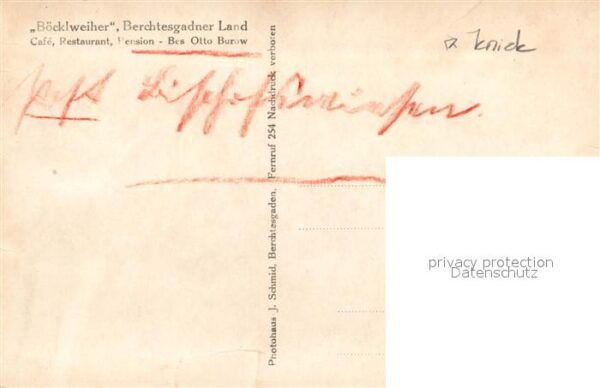 „Böcklweiher“, Berchtesgadner Land
Café, Restaurant, Pension - Bes Otto Burow
knick
Post Bischofswiesen.
Photohaus J. Schmid, Berchtesgaden, Fernruf 254 Nachdruck verboten
privacy protection
Datenschutz